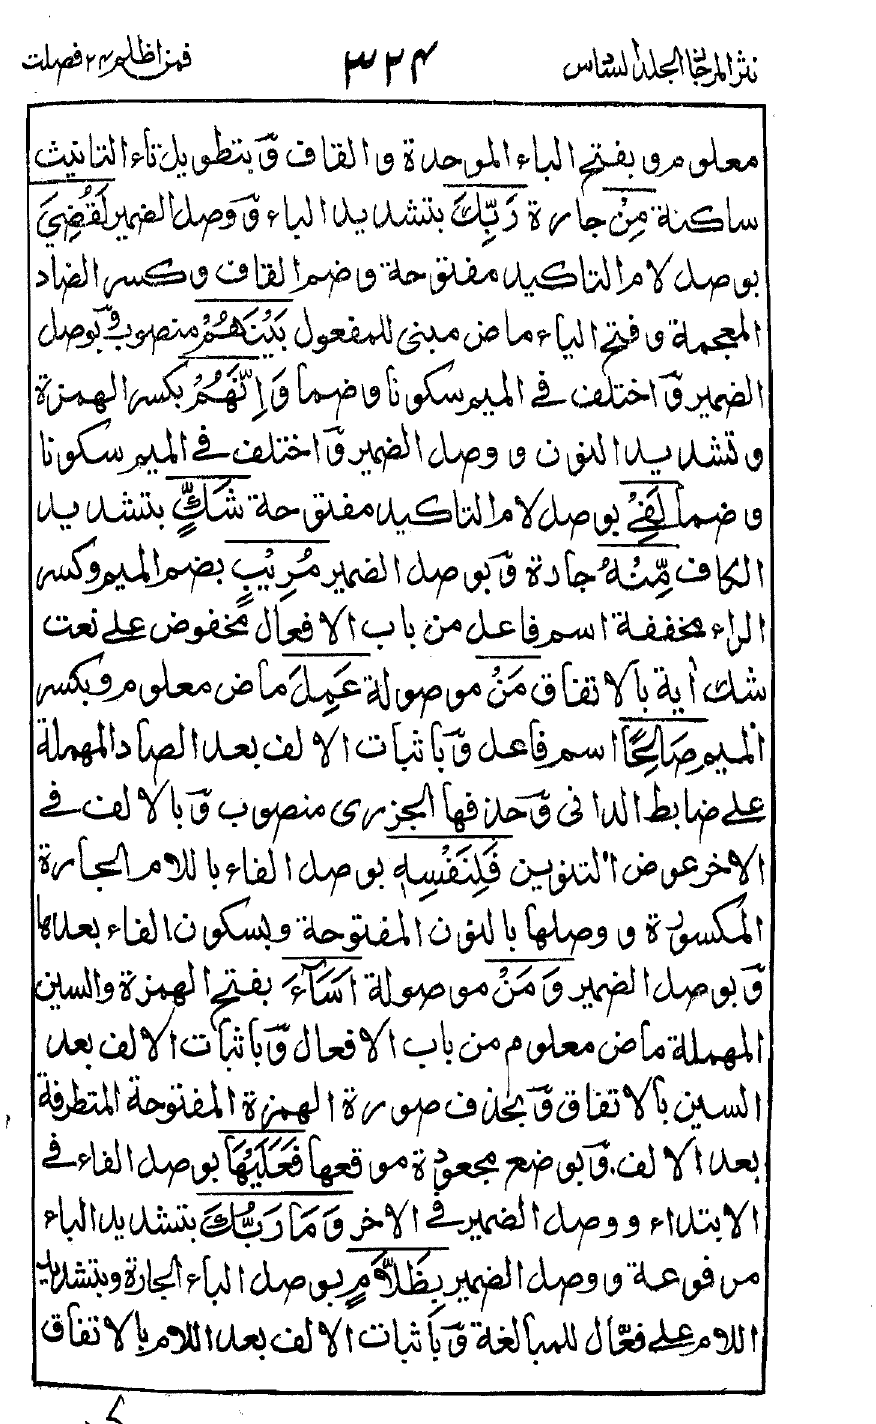 نثر المرجان الجلد السادس ٣٢٤ فمن اظلم ٢٤ فصلت
معلوم وبفتح الباء الموحدة والقاف وَّبتطويل تاء التانيث
ساكنة مِنْ جارة رَبِّكَ بتشديد الباء وَّوصل الضمير لَقُضِيَ
بوصل لام التاكيد مفتوحة وضم القاف وكسر الضاد
المعجمة وفتح الياء ماض مبنى للمفعول بَيْنَهُمْ منصوب وَّبوصل
الضمير وَّاختلف فى الميم سكونا وضما وَاِنَّهُمْ بكسر الهمزة
وتشديد النون ووصل الضمير وَّاختلف فى الميم سكونا
وضما لَفِيْ بوصل لام التاكيد مفتوحة شَكٍّ بتشديد
الكاف مِّنْهُ جارة وَّبوصل الضمير مُرِيْبٍ بضم الميم وكسر
الراء مخففة اسم فاعل من باب الافعال مخفوض على نعت
شك اٰية بالاتفاق مَنْ موصولة عَمِلَ ماض معلوم وبكسر
الميم صَالِحًا اسم فاعل وَّباثبات الالف بعد الصاد المهملة
على ضابط الدانى وَّحذفها الجزرى منصوب وَّبالالف فى
الاخر عوض التنوين فَلِنَفْسِهٖ بوصل الفاء باللام الجارة
المكسورة ووصلها بالنون المفتوحة وبسكون الفاء بعدها
وَّبوصل الضمير وَمَنْ موصولة اَسَآءَ بفتح الهمزة والسين
المهملة ماض معلوم من باب الافعال وَّباثبات الالف بعد
السين بالاتفاق وَّبحذف صورة الهمزة المفتوحة المتطرفة
بعد الالف وَّبوضع مجعودة موقعها فَعَلَيْهَا بوصل الفاء فى
الابتداء ووصل الضمير فى الاخر وَمَا رَبُّكَ بتشديد الباء
مرفوعة ووصل الضمير بِظَلَّامٍ بوصل الباء الجارة وبتشديد
اللام على فعّال للمبالغة وَّباثبات الالف بعد اللام بالاتفاق